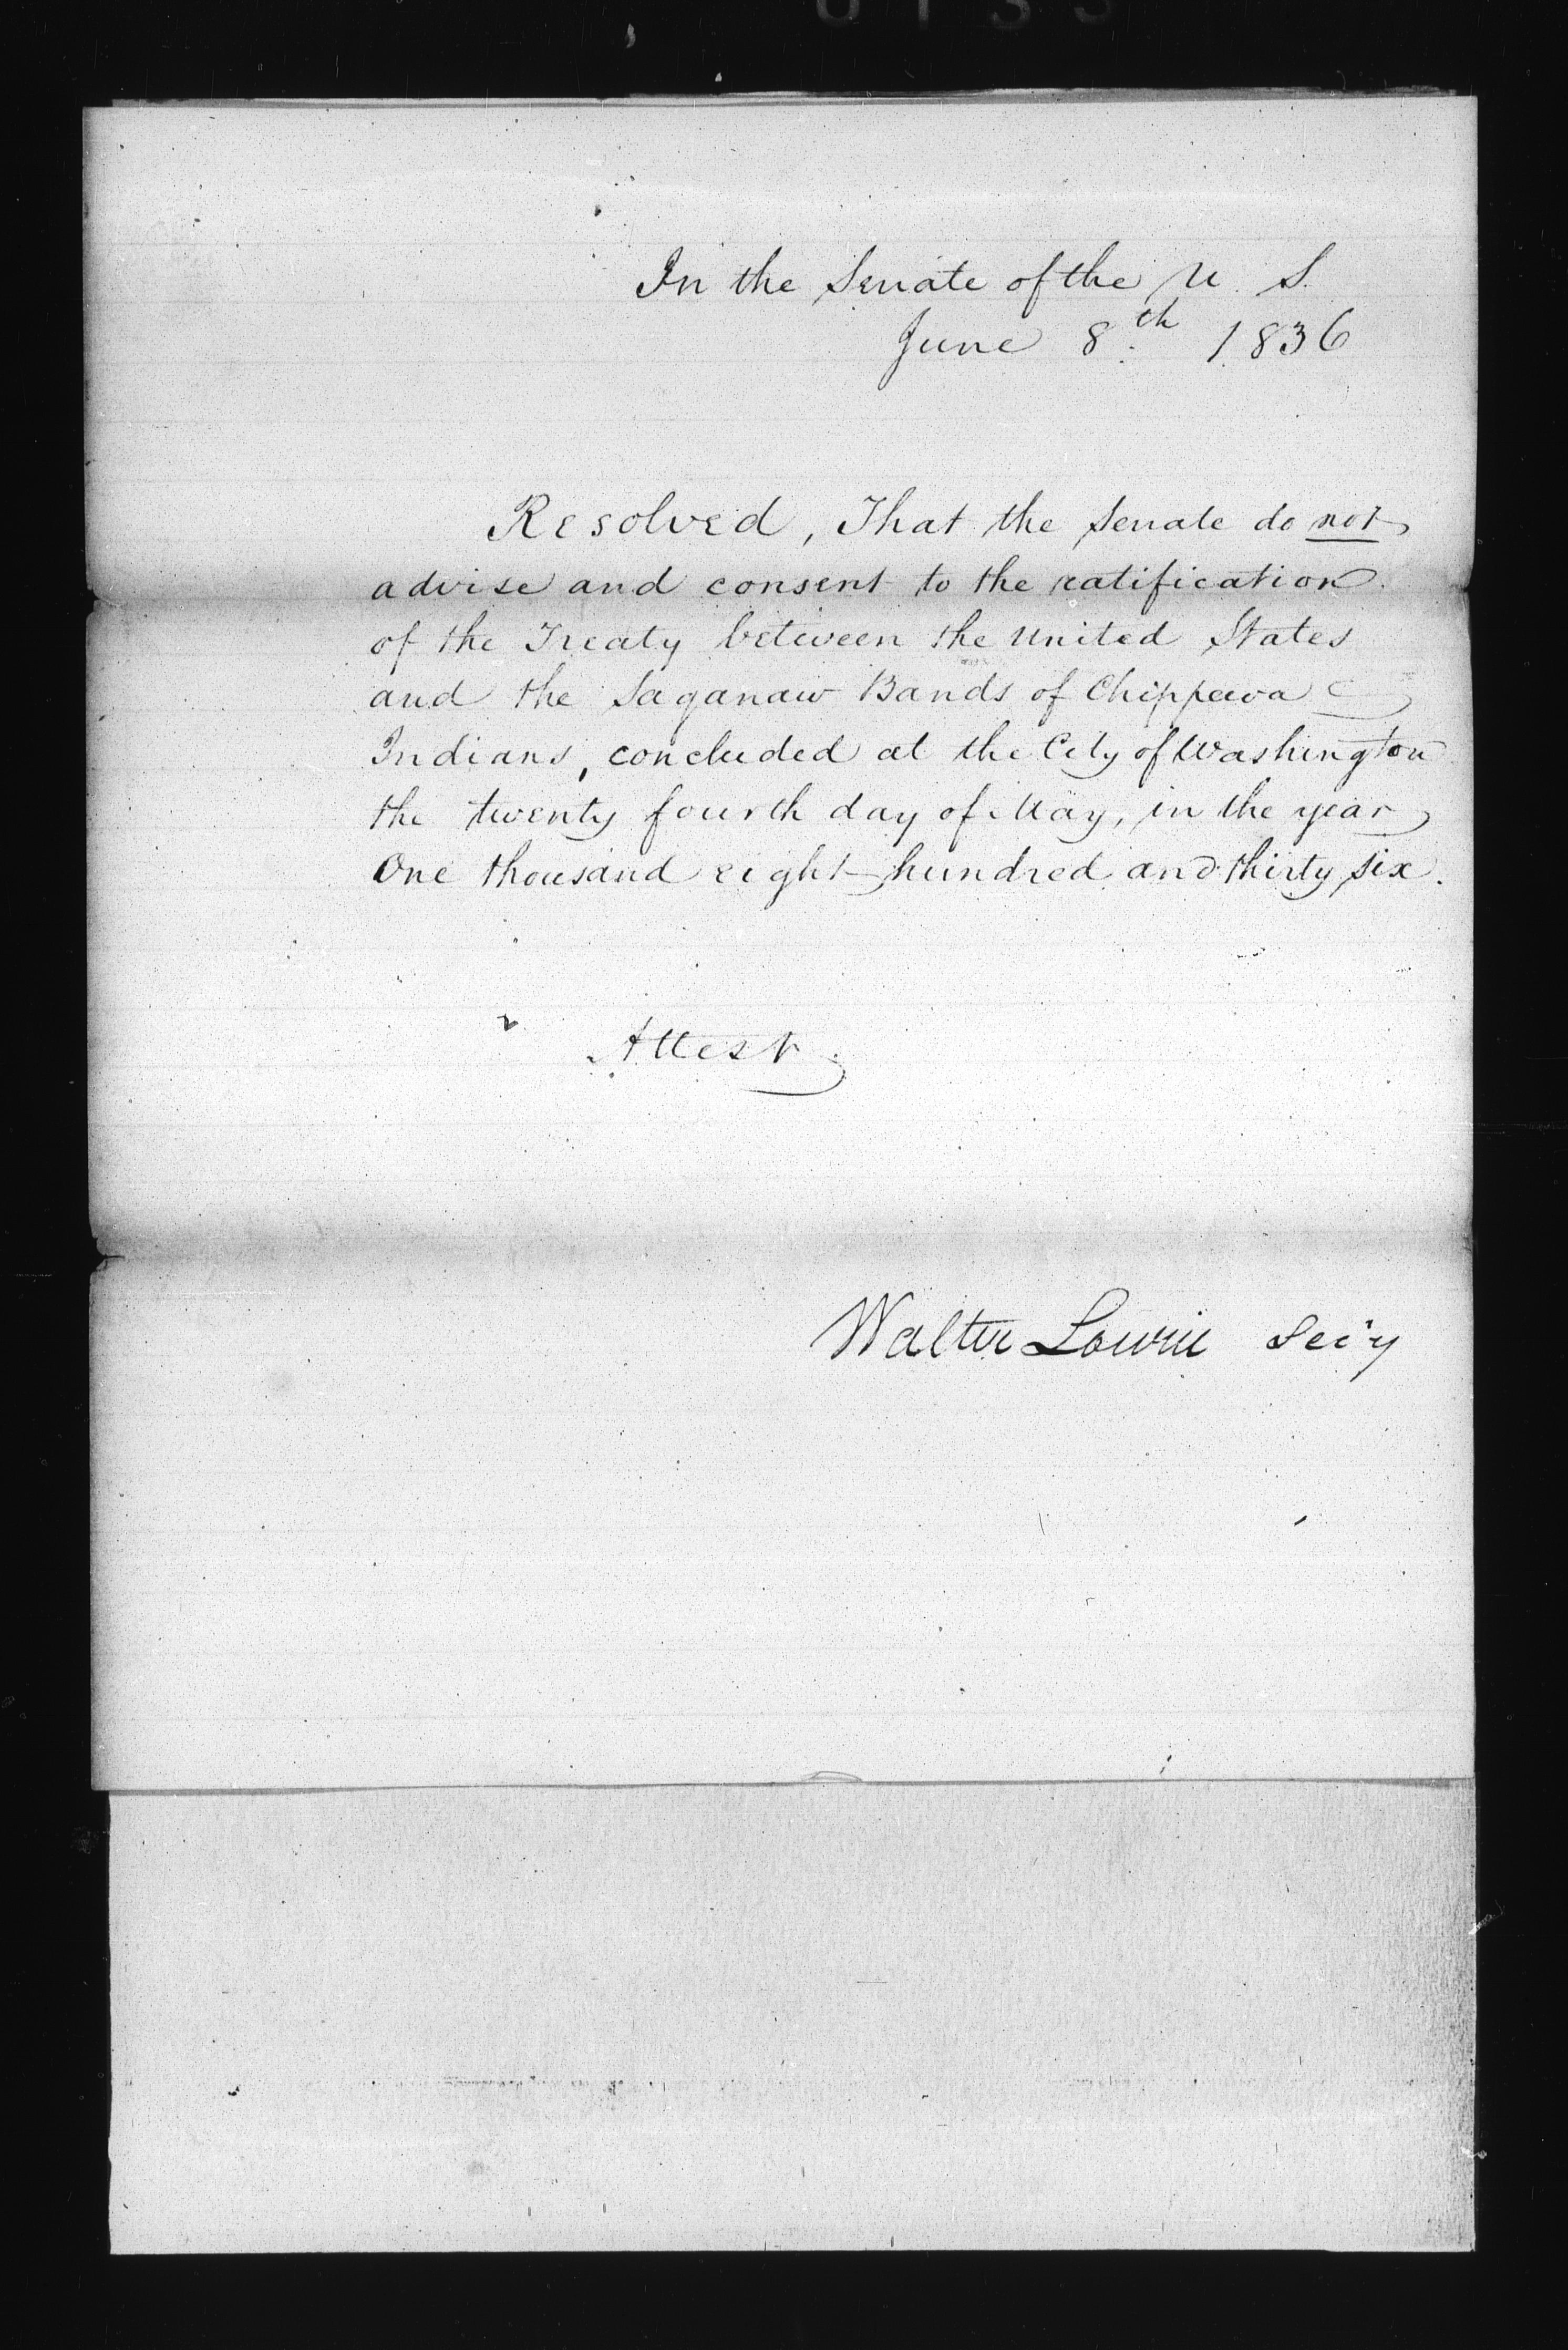 In the Senate of the U. S.
June 8th 1836
Resolved, That the Senate do not
advise and consent to the ratification
of the Treaty between the United States
and the Saganaw Bands of Chippewa
Indians, concluded at the City of Washington
the twenty fourth day of May, in the year
One thousand eight hundred and thirty six.
Attest
Walter Lowrie Sec'y